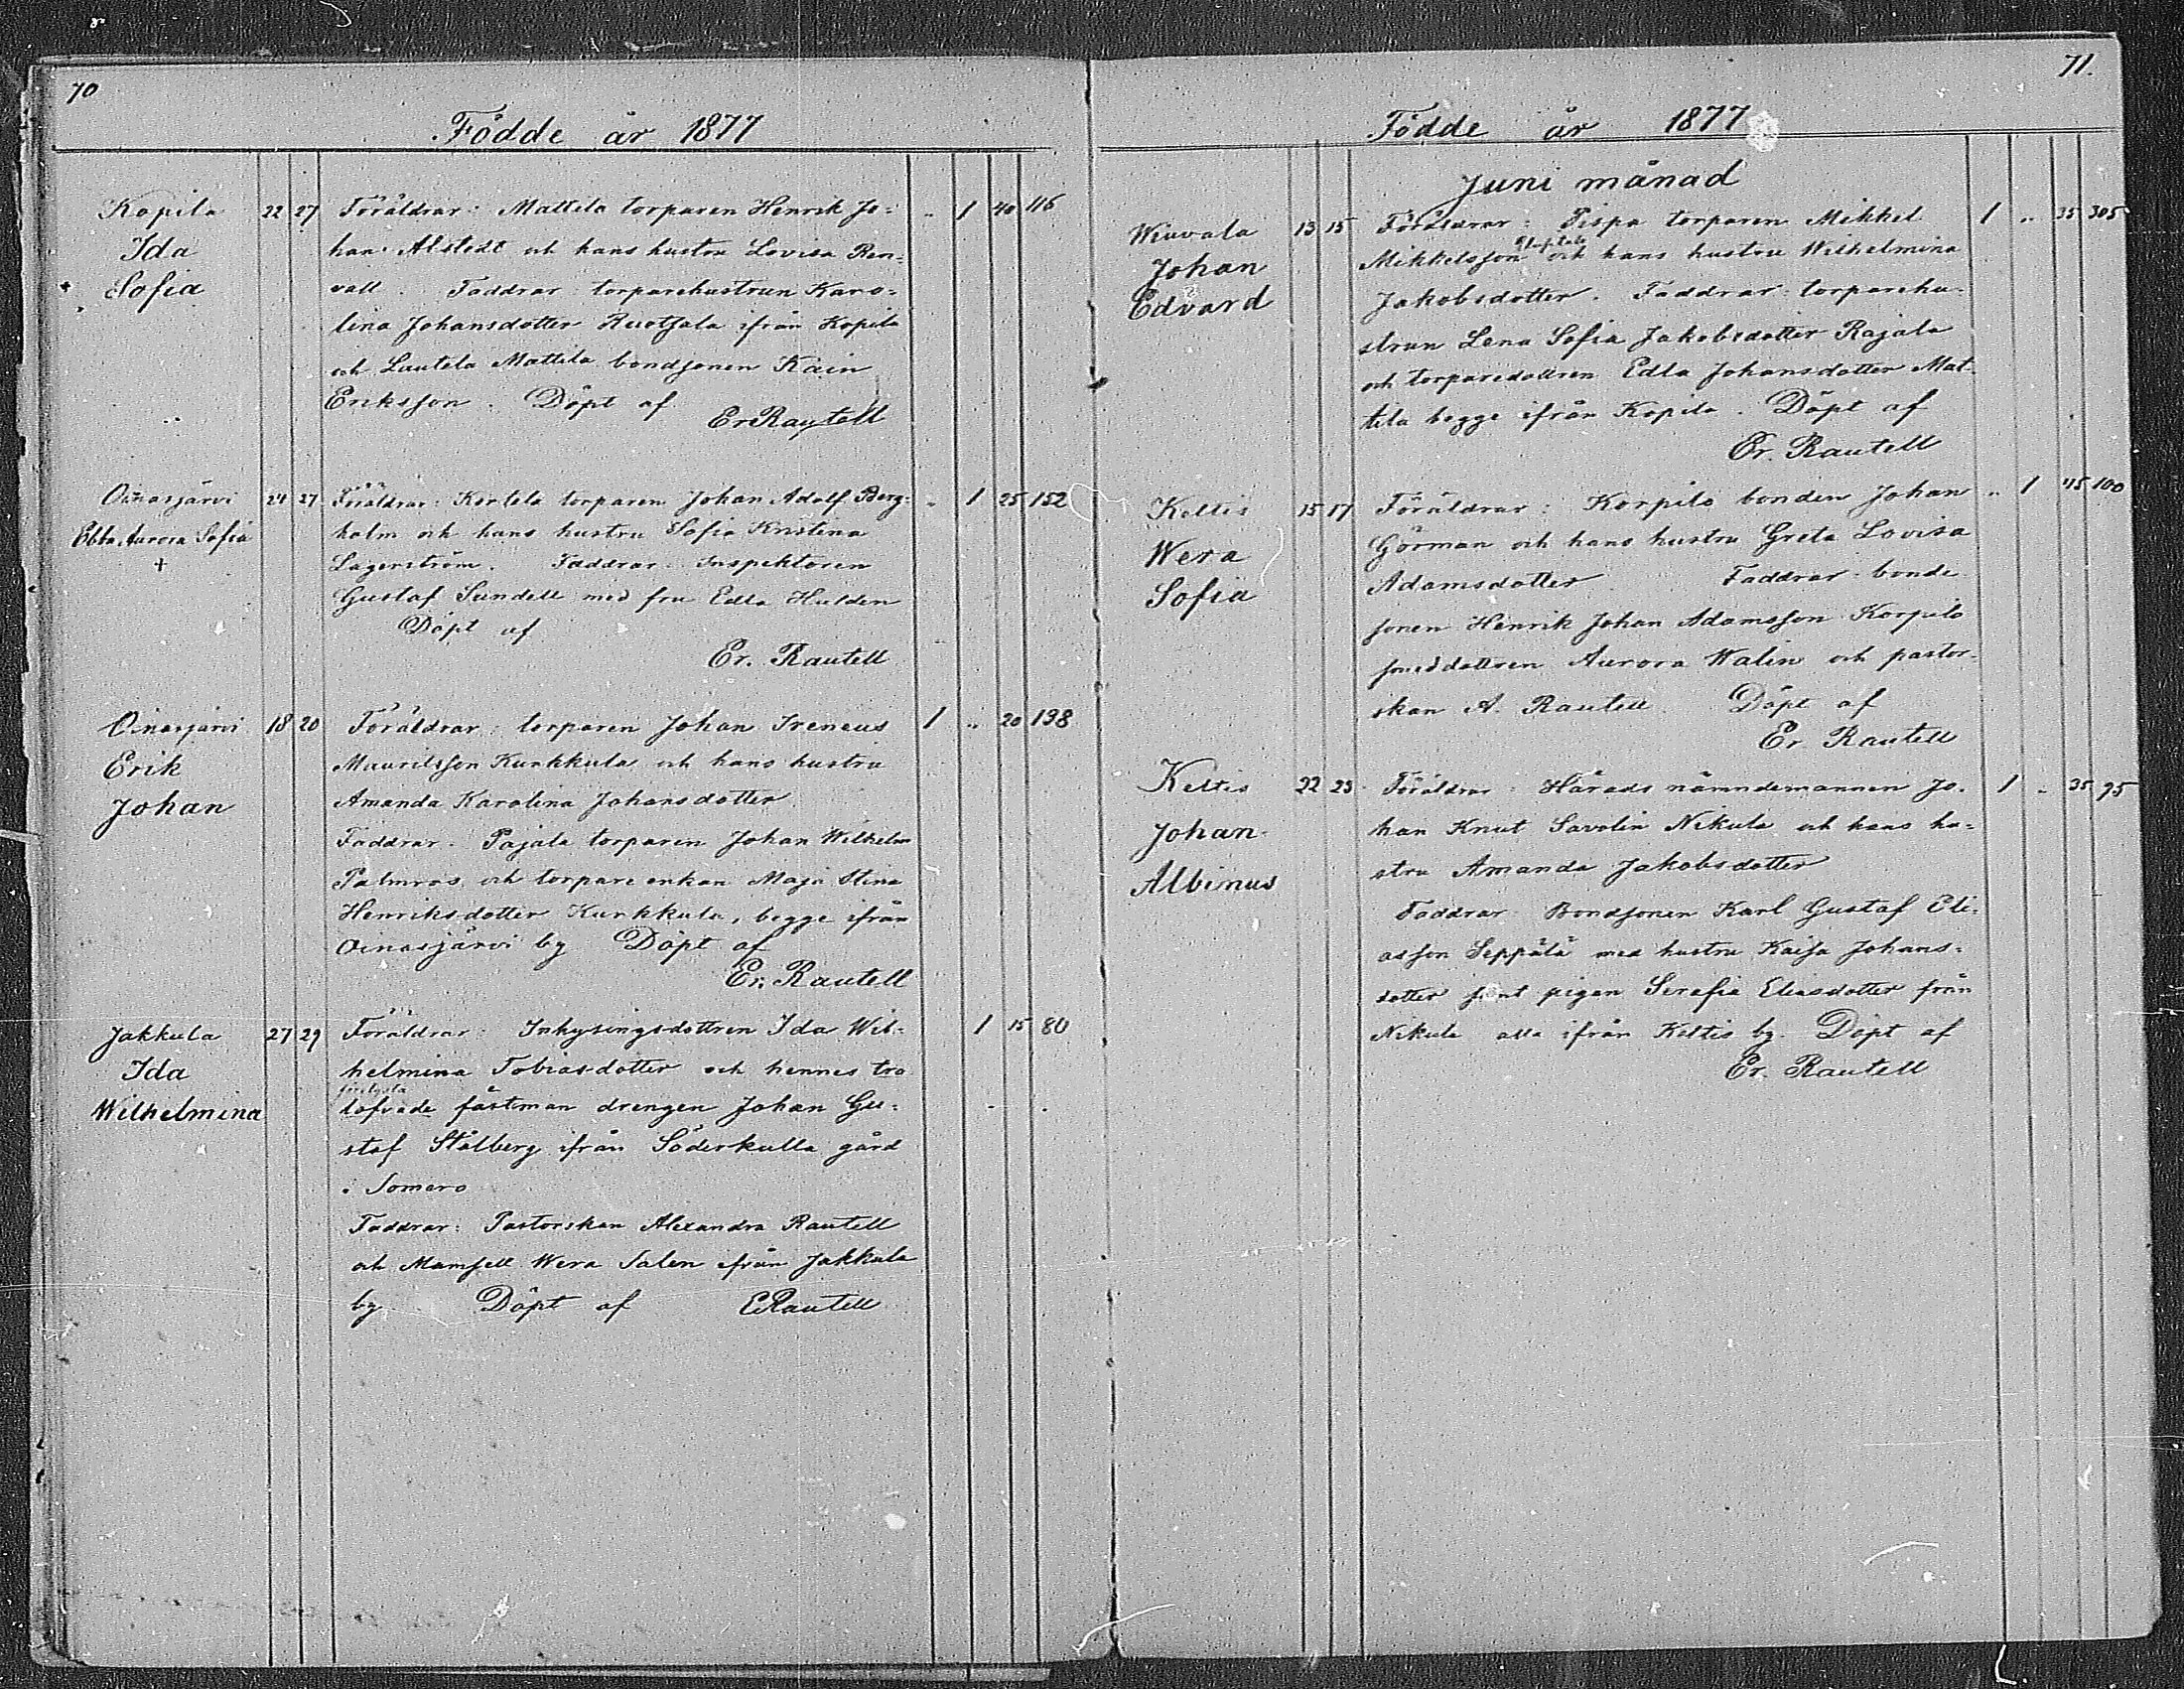 70
Födde år 1877
Kopila 22 27 Föräldrar: Mattila torparen Henrik Jo- „ 1 40 116
Ida han Alstedt och hans hustru Lovisa Ren-
Sofia vall. Faddrar: torparehustrun Karo-
lina Johansdotter Ruotsala ifrån Kopila
och Lautela Mattila bondsonen Kain
Eriksson. Döpt af
Er Rautell
Oinasjärvi 24 27 Föräldrar: Kertela torparen Johan Adolf Berg- „ 1 25 152
Ebba Aurora Sofia holm och hans hustru Sofia Kristina
+ Lagerström. Faddrar: Inspektoren
Gustaf Sundell med fru Edla Hulden
Döpt af
Er. Rautell
Oinasjärvi 18 20 Föräldrar: torparen Johan Ireneus 1 „ 20 138
Erik Mauritsson Kurkkula och hans hustru
Johan Amanda Karolina Johansdotter.
Faddrar. Pajala torparen Johan Wilhelm
Palmros och torpare enkan Maja Stina
Henriksdotter Kurkkula, begge ifrån
Oinasjärvi by Döpt af
Er. Rautell
Jakkula 27 29 Föräldrar: Inhysingsdottren Ida Wil- 1 15 80
Ida helmina Tobiasdotter och hennes tro
Wilhelmina lofvade fästman drengen Johan Gu-
staf Stålberg ifrån Söderkulla gård
i Somero
Faddrar: Pastorskan Alexandra Rautell
och Mamsell Wera Salen ifrån Jakkula
by Döpt af E Rautell
71.
Födde år 1877
Juni månad
Wiuvala 13 15 Föräldrar: Pispa torparen Mikkel 1 „ 35 305
Johan Mikkelsson och hans hustru Wilhelmina
Edvard Jakobsdotter. Faddrar: torparehu-
strun Lena Sofia Jakobsdotter Rajala
och torparedottren Edla Johansdotter Mat-
tila begge ifrån Kopila. Döpt af
Er. Rautell
Keltis 15 17 Föräldrar: Korpilo bonden Johan „ 1 45 100
Wera Görman och hans hustru Greta Lovisa
Sofia Adamsdotter Faddrar: bonde
sonen Henrik Johan Adamsson Korpilo
Aurora Walin och pastor-
skan A. Rautell Döpt af
Er Rautell
Keltis 22 23 Föräldrar: Härads nämndemannen Jo- 1 „ 35 95
Johan han Knut Savolin Nikula och hans hu-
Albinus stru Amanda Jakobsdotter
Faddrar: Bondsonen Karl Gustaf Eli-
asson Seppälä med hustru Kaisa Johans-
dotter samt pigan Serafia Eliasdotter från
Nikula alla ifrån Keltis by. Döpt af
Er. Rautell